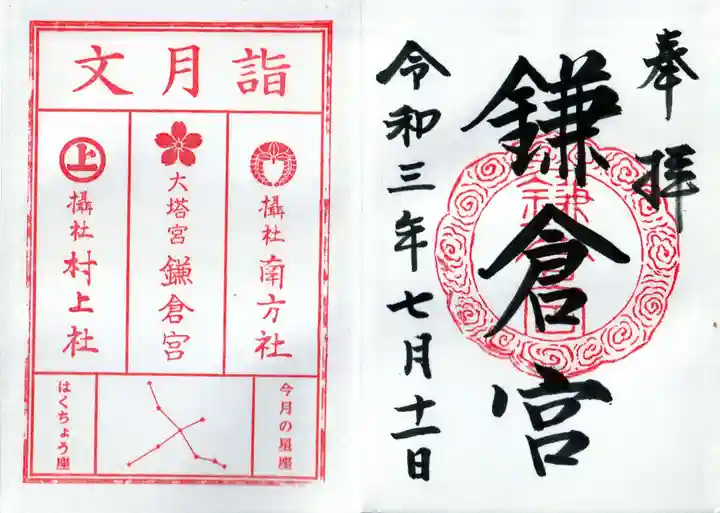 奉拝
鎌倉宮
令和三年七月十一日
鎌倉宮
詣月文
攝社 南方社
大塔宮 鎌倉宮
上
攝社 村上社
今月の星座
はくちょう座